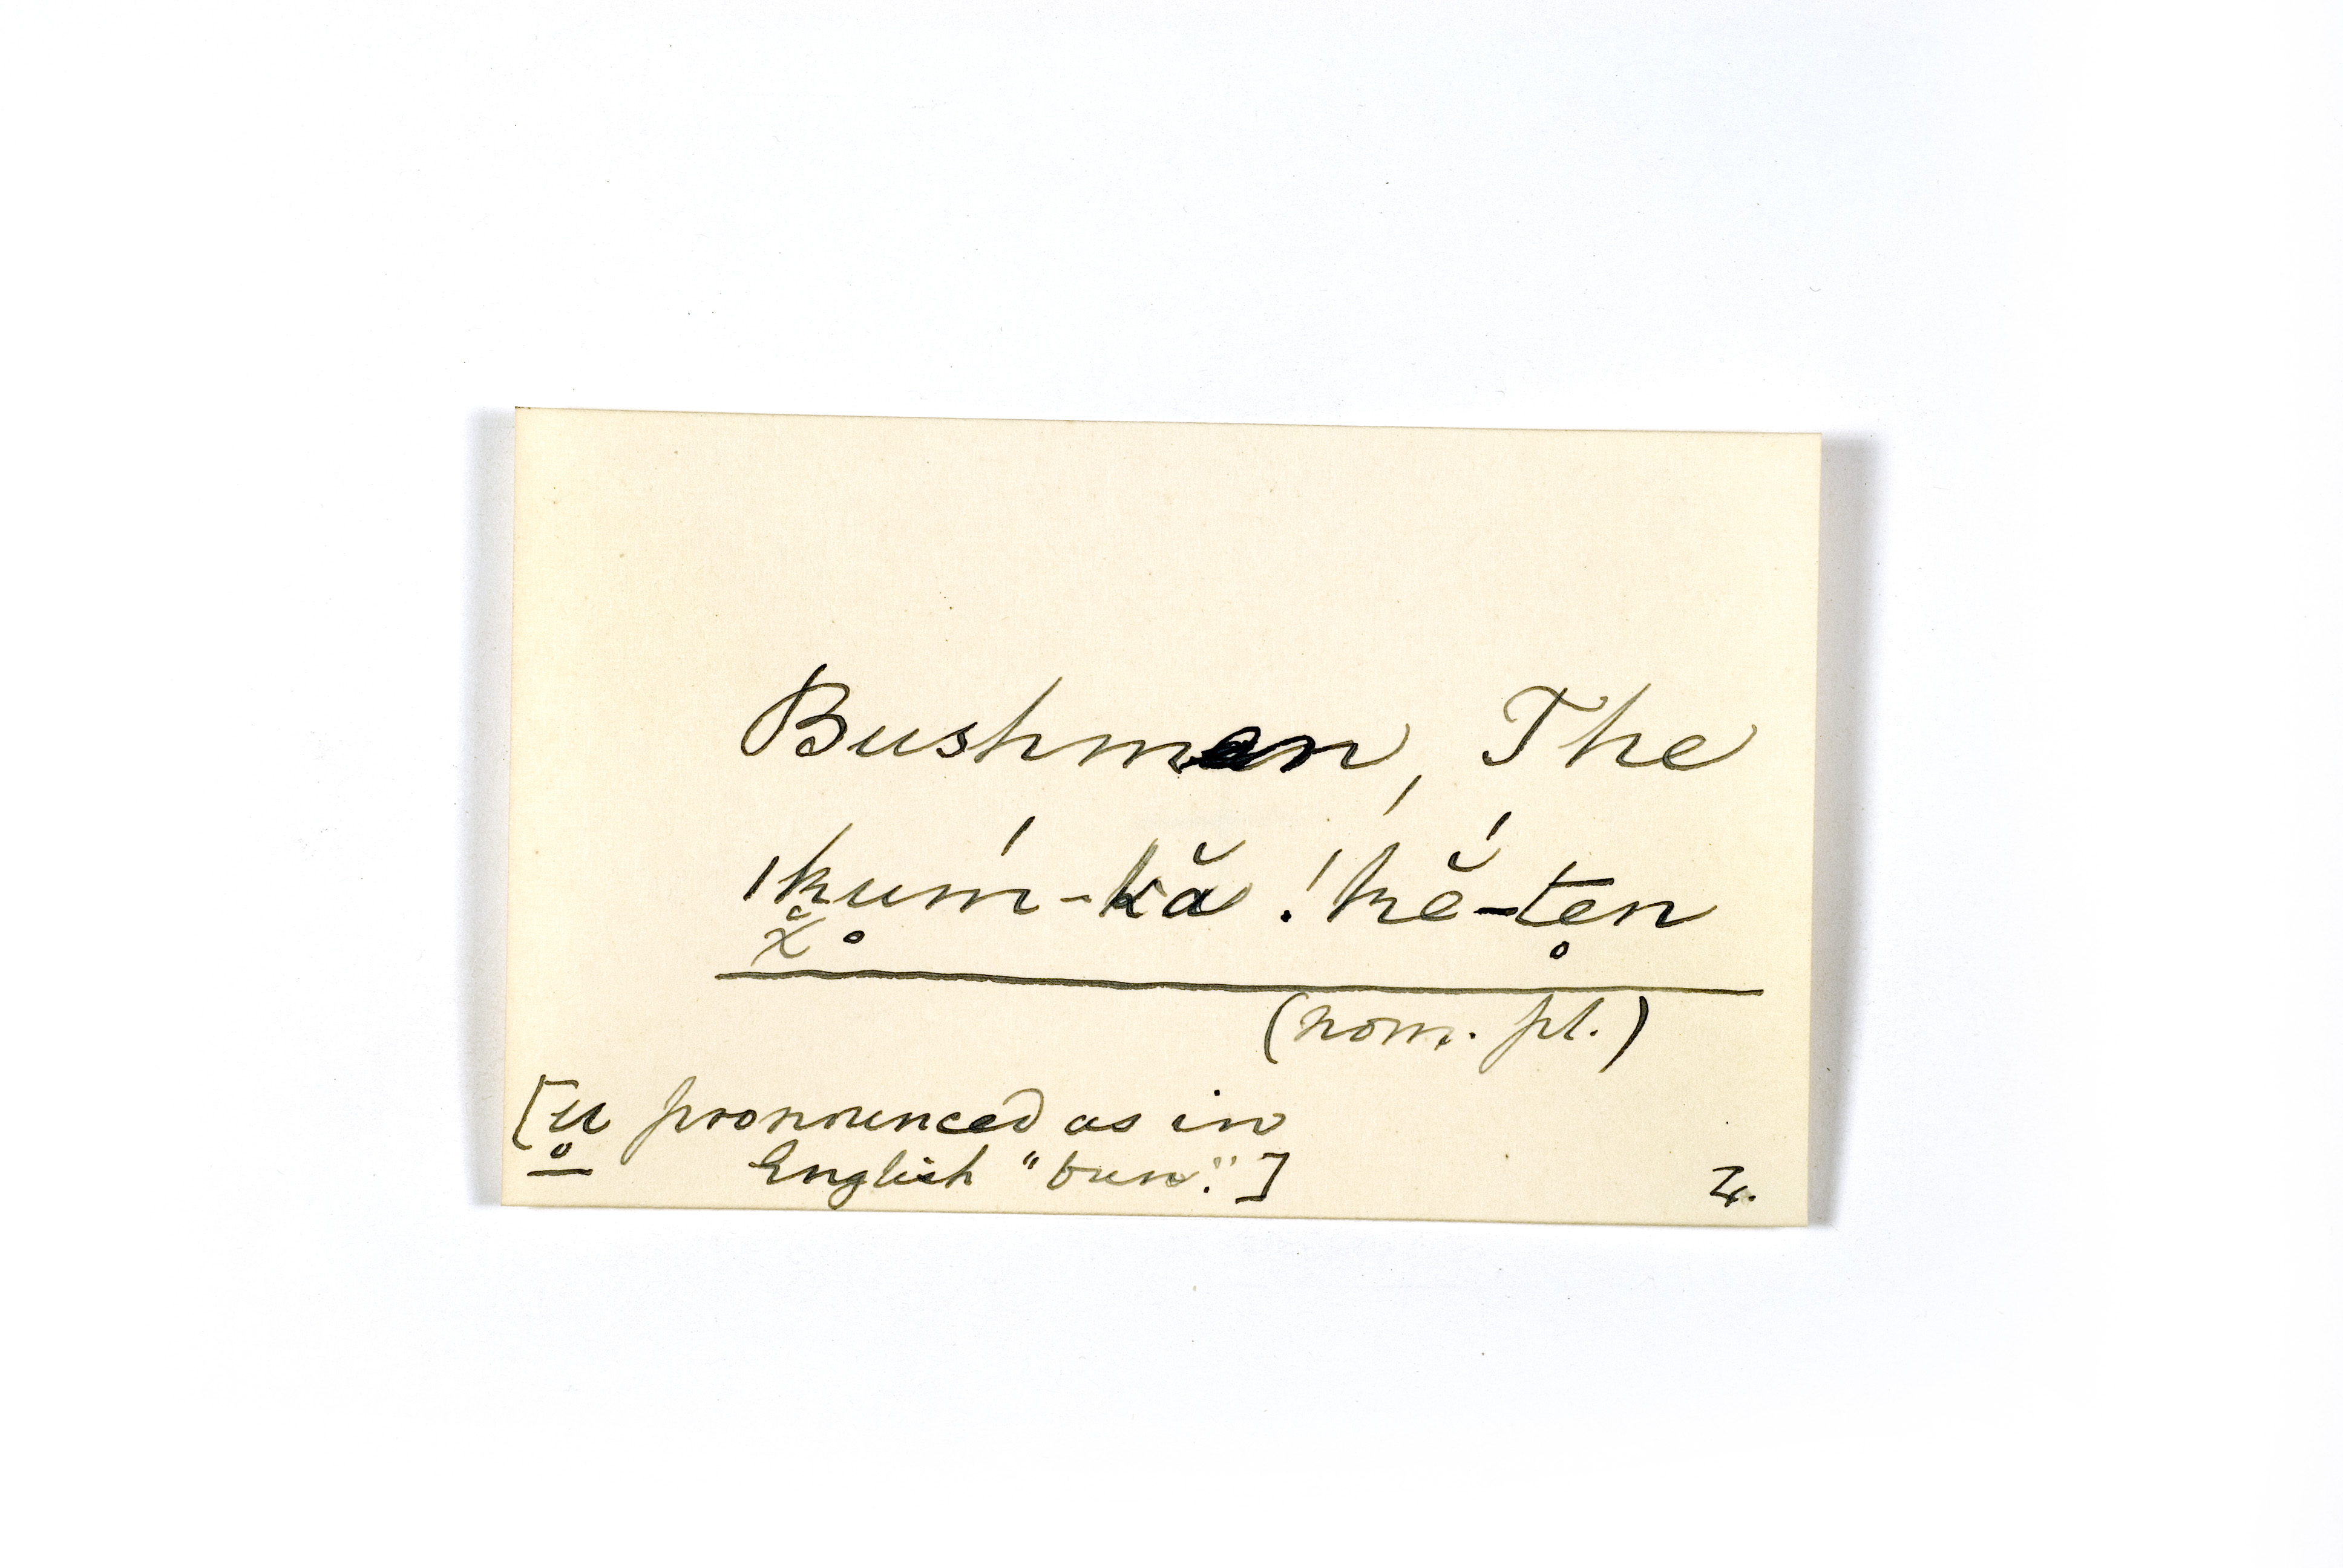 Bushmen, The
ǀk̬̊u̥ḿ-kă !kĕ́-te̥n
(nom. pl.)
[u̥ pronounced as in
English "bun".]